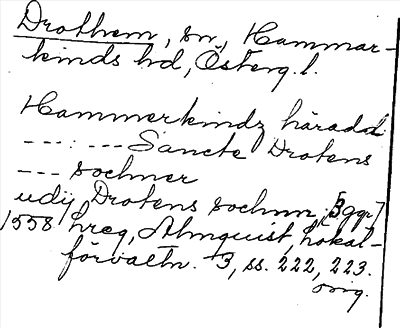 Drothem, sn, Hammar-
kinds hd, Österg.l.
Hammerkindz häradd
--- : --- Sancte Drotens
--- sochner
udij Drotens sochnn, [3 ggr]
1558. hreg, Almquist, Lokal-
förvaltn. 3, ss. 222, 223.
orig.